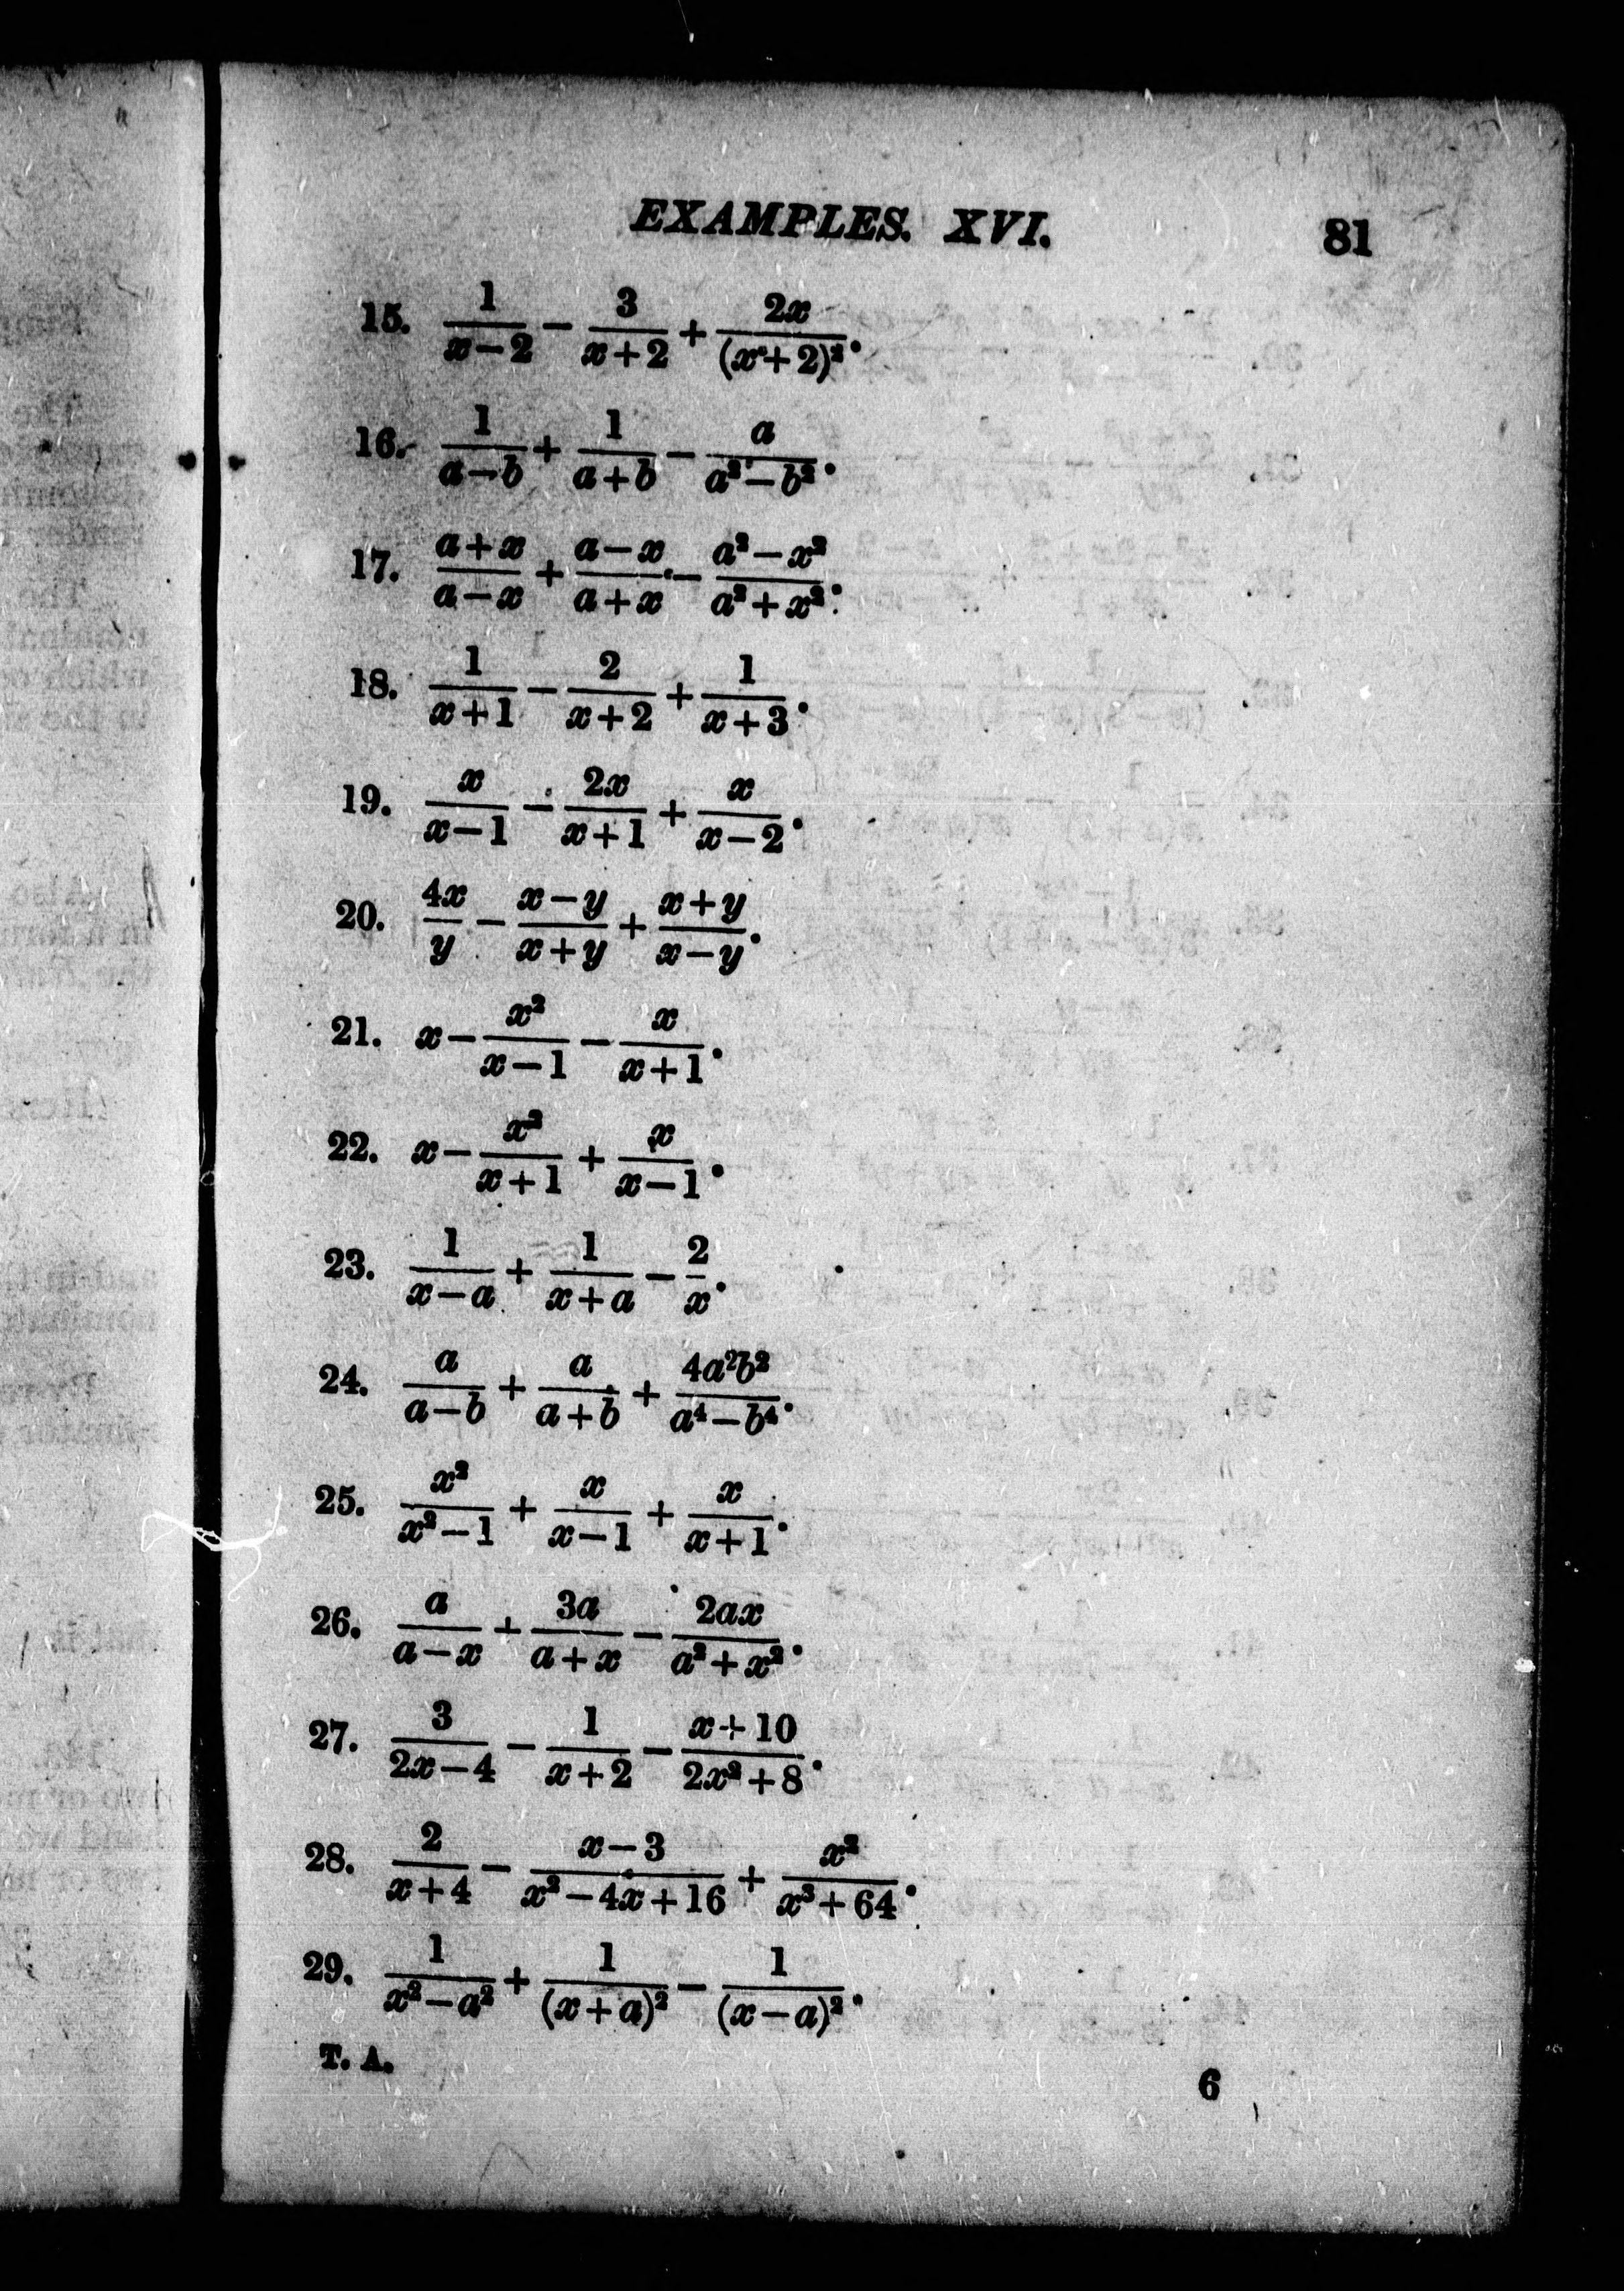 EXAMPLES. XVI. 81
15. 1/(x−2) − 3/(x+2) + 2x/(x+2)².
16. 1/(a−b) + 1/(a+b) − a/(a²−b²).
17. (a+x)/(a−x) + (a−x)/(a+x) − (a²−x²)/(a²+x²).
18. 1/(x+1) − 2/(x+2) + 1/(x+3).
19. x/(x−1) − 2x/(x+1) + x/(x−2).
20. 4x/y − (x−y)/(x+y) + (x+y)/(x−y).
21. x − x²/(x−1) − x/(x+1).
22. x − x²/(x+1) + x/(x−1).
23. 1/(x−a) + 1/(x+a) − 2/x.
24. a/(a−b) + a/(a+b) + 4a²b²/(a⁴−b⁴).
25. x²/(x²−1) + x/(x−1) + x/(x+1).
26. a/(a−x) + 3a/(a+x) − 2ax/(a²+x²).
27. 3/(2x−4) − 1/(x+2) − (x+10)/(2x²+8).
28. 2/(x+4) − (x−3)/(x²−4x+16) + x²/(x³+64).
29. 1/(x²−a²) + 1/(x+a)² − 1/(x−a)².
T. A. 6